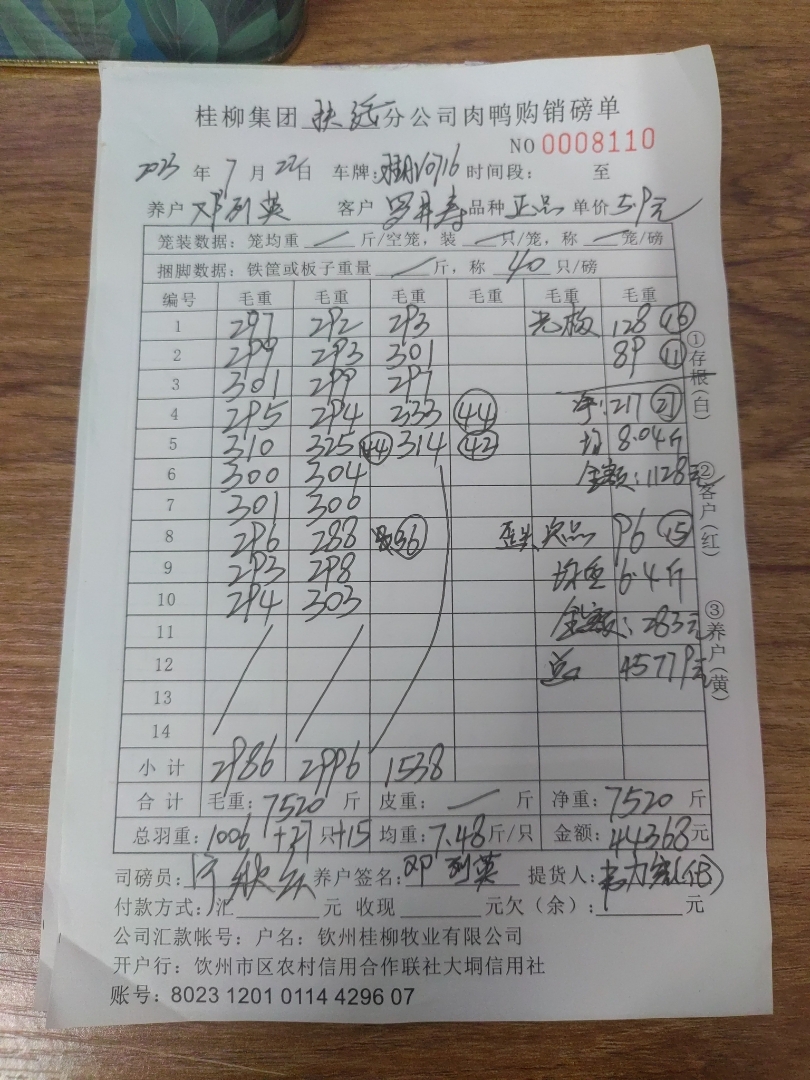 桂柳集团 扶远 分公司肉鸭购销磅单
NO 0008110
2023 年 7 月 22 日 车牌: 时间段: 至
养户 邓列英 客户 品种 正品 单价 5.9元
笼装数据: 笼均重 / 斤/空笼, 装 / 只/笼, 称 / 笼/磅
捆脚数据: 铁筐或板子重量 / 斤, 称 40 只/磅
编号 毛重 毛重 毛重 毛重 毛重 毛重
1 297 292 293 128 16
2 299 293 301 89 11
3 301 299 297
4 295 294 333 44 净: 217 27
5 310 325 44 314 42 均 8.04斤
6 300 304 金额: 1128元
7 301 300
8 296 288 36 次品 96 15
9 293 298 均重 6.4斤
10 294 303 金额: 283元
11
12 总 45779元
13
14
小计 2986 2996 1538
合计 毛重: 7520 斤 皮重: / 斤 净重: 7520 斤
总羽重: 1006 +27 只 +15 均重: 7.48 斤/只 金额: 44368 元
司磅员: 养户签名: 邓列英 提货人:
付款方式: 汇 元 收现 元 欠(余): 元
公司汇款帐号: 户名: 钦州桂柳牧业有限公司
开户行: 饮州市区农村信用合作联社大垌信用社
账号: 8023 1201 0114 4296 07
①存根(白)
②客户(红)
③养户(黄)